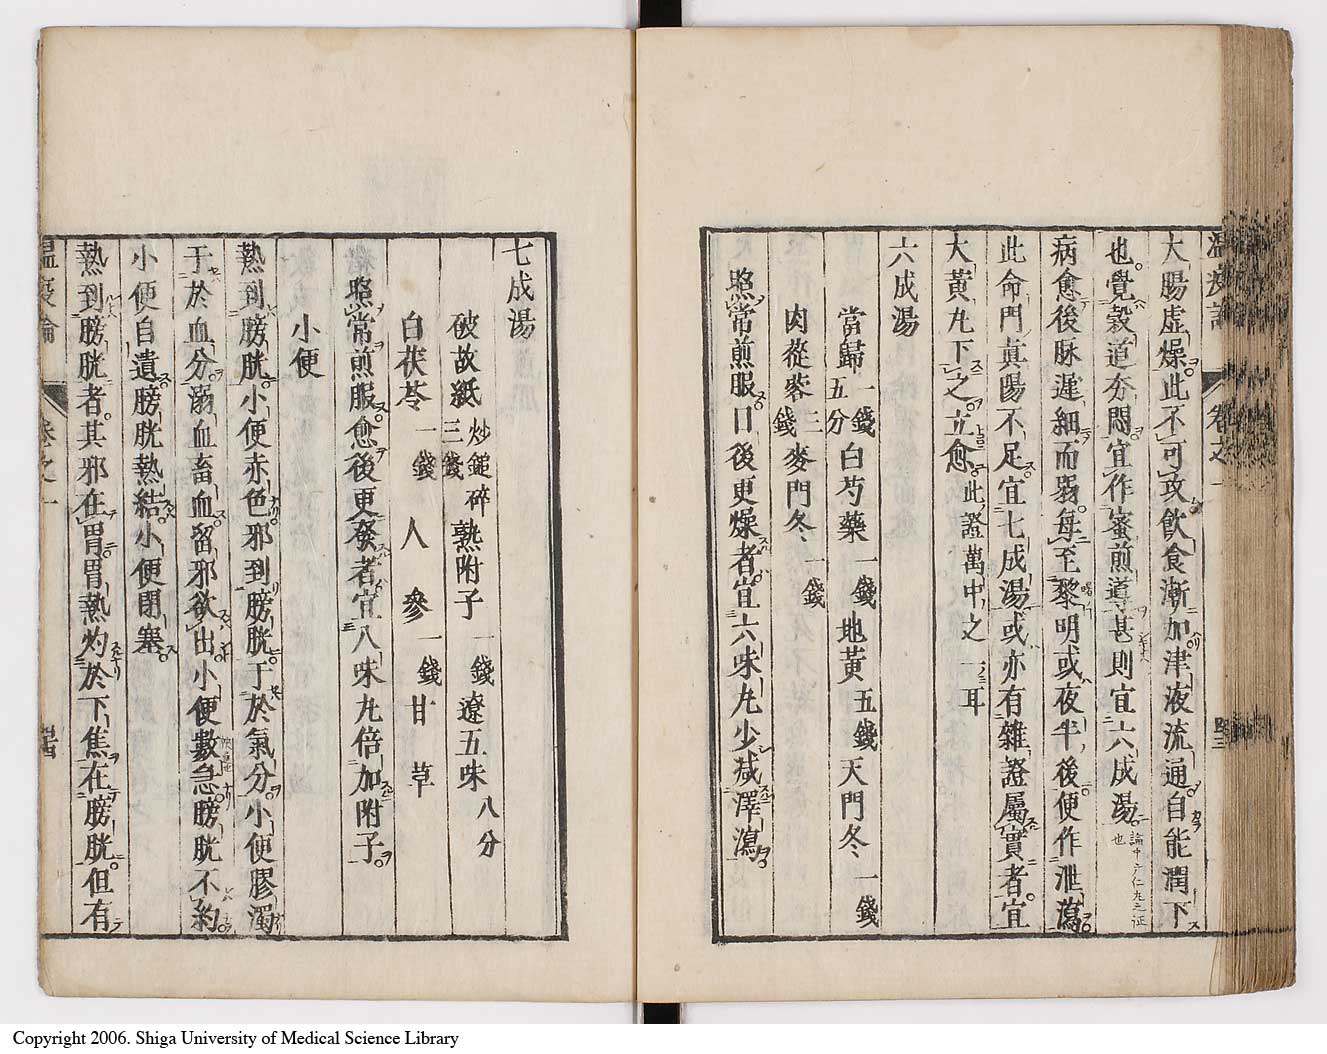 溫疫論
卷之一
大腸虛燥此不可攻飲食漸加津液流通自能潤下
也覺穀道夯悶宜作蜜煎導甚則宜六成湯
病愈後脉遲細而弱每至黎明或夜半後便作泄瀉
此命門真陽不足宜七成湯或亦有雜證屬實者宜
大黃丸下之立愈此證萬中之一耳
六成湯
當歸一錢五分白芍藥一錢地黃五錢天門冬一錢
肉蓯蓉三錢麥門冬一錢
照常煎服日後更燥者宜六味丸少減澤瀉
七成湯
破故紙炒鎚碎三錢熟附子一錢遼五味八分
白茯苓一錢人參一錢甘草
照常煎服愈後更發者宜八味丸倍加附子
小便
熱到膀胱小便赤色邪到膀胱于於氣分小便膠濁
于於血分溺血畜血留邪欲出小便數急膀胱不約
小便自遺膀胱熱結小便閉塞
熱到膀胱者其邪在胃胃熱灼於下焦在膀胱但有
溫疫論
卷之一
Copyright 2006. Shiga University of Medical Science Library